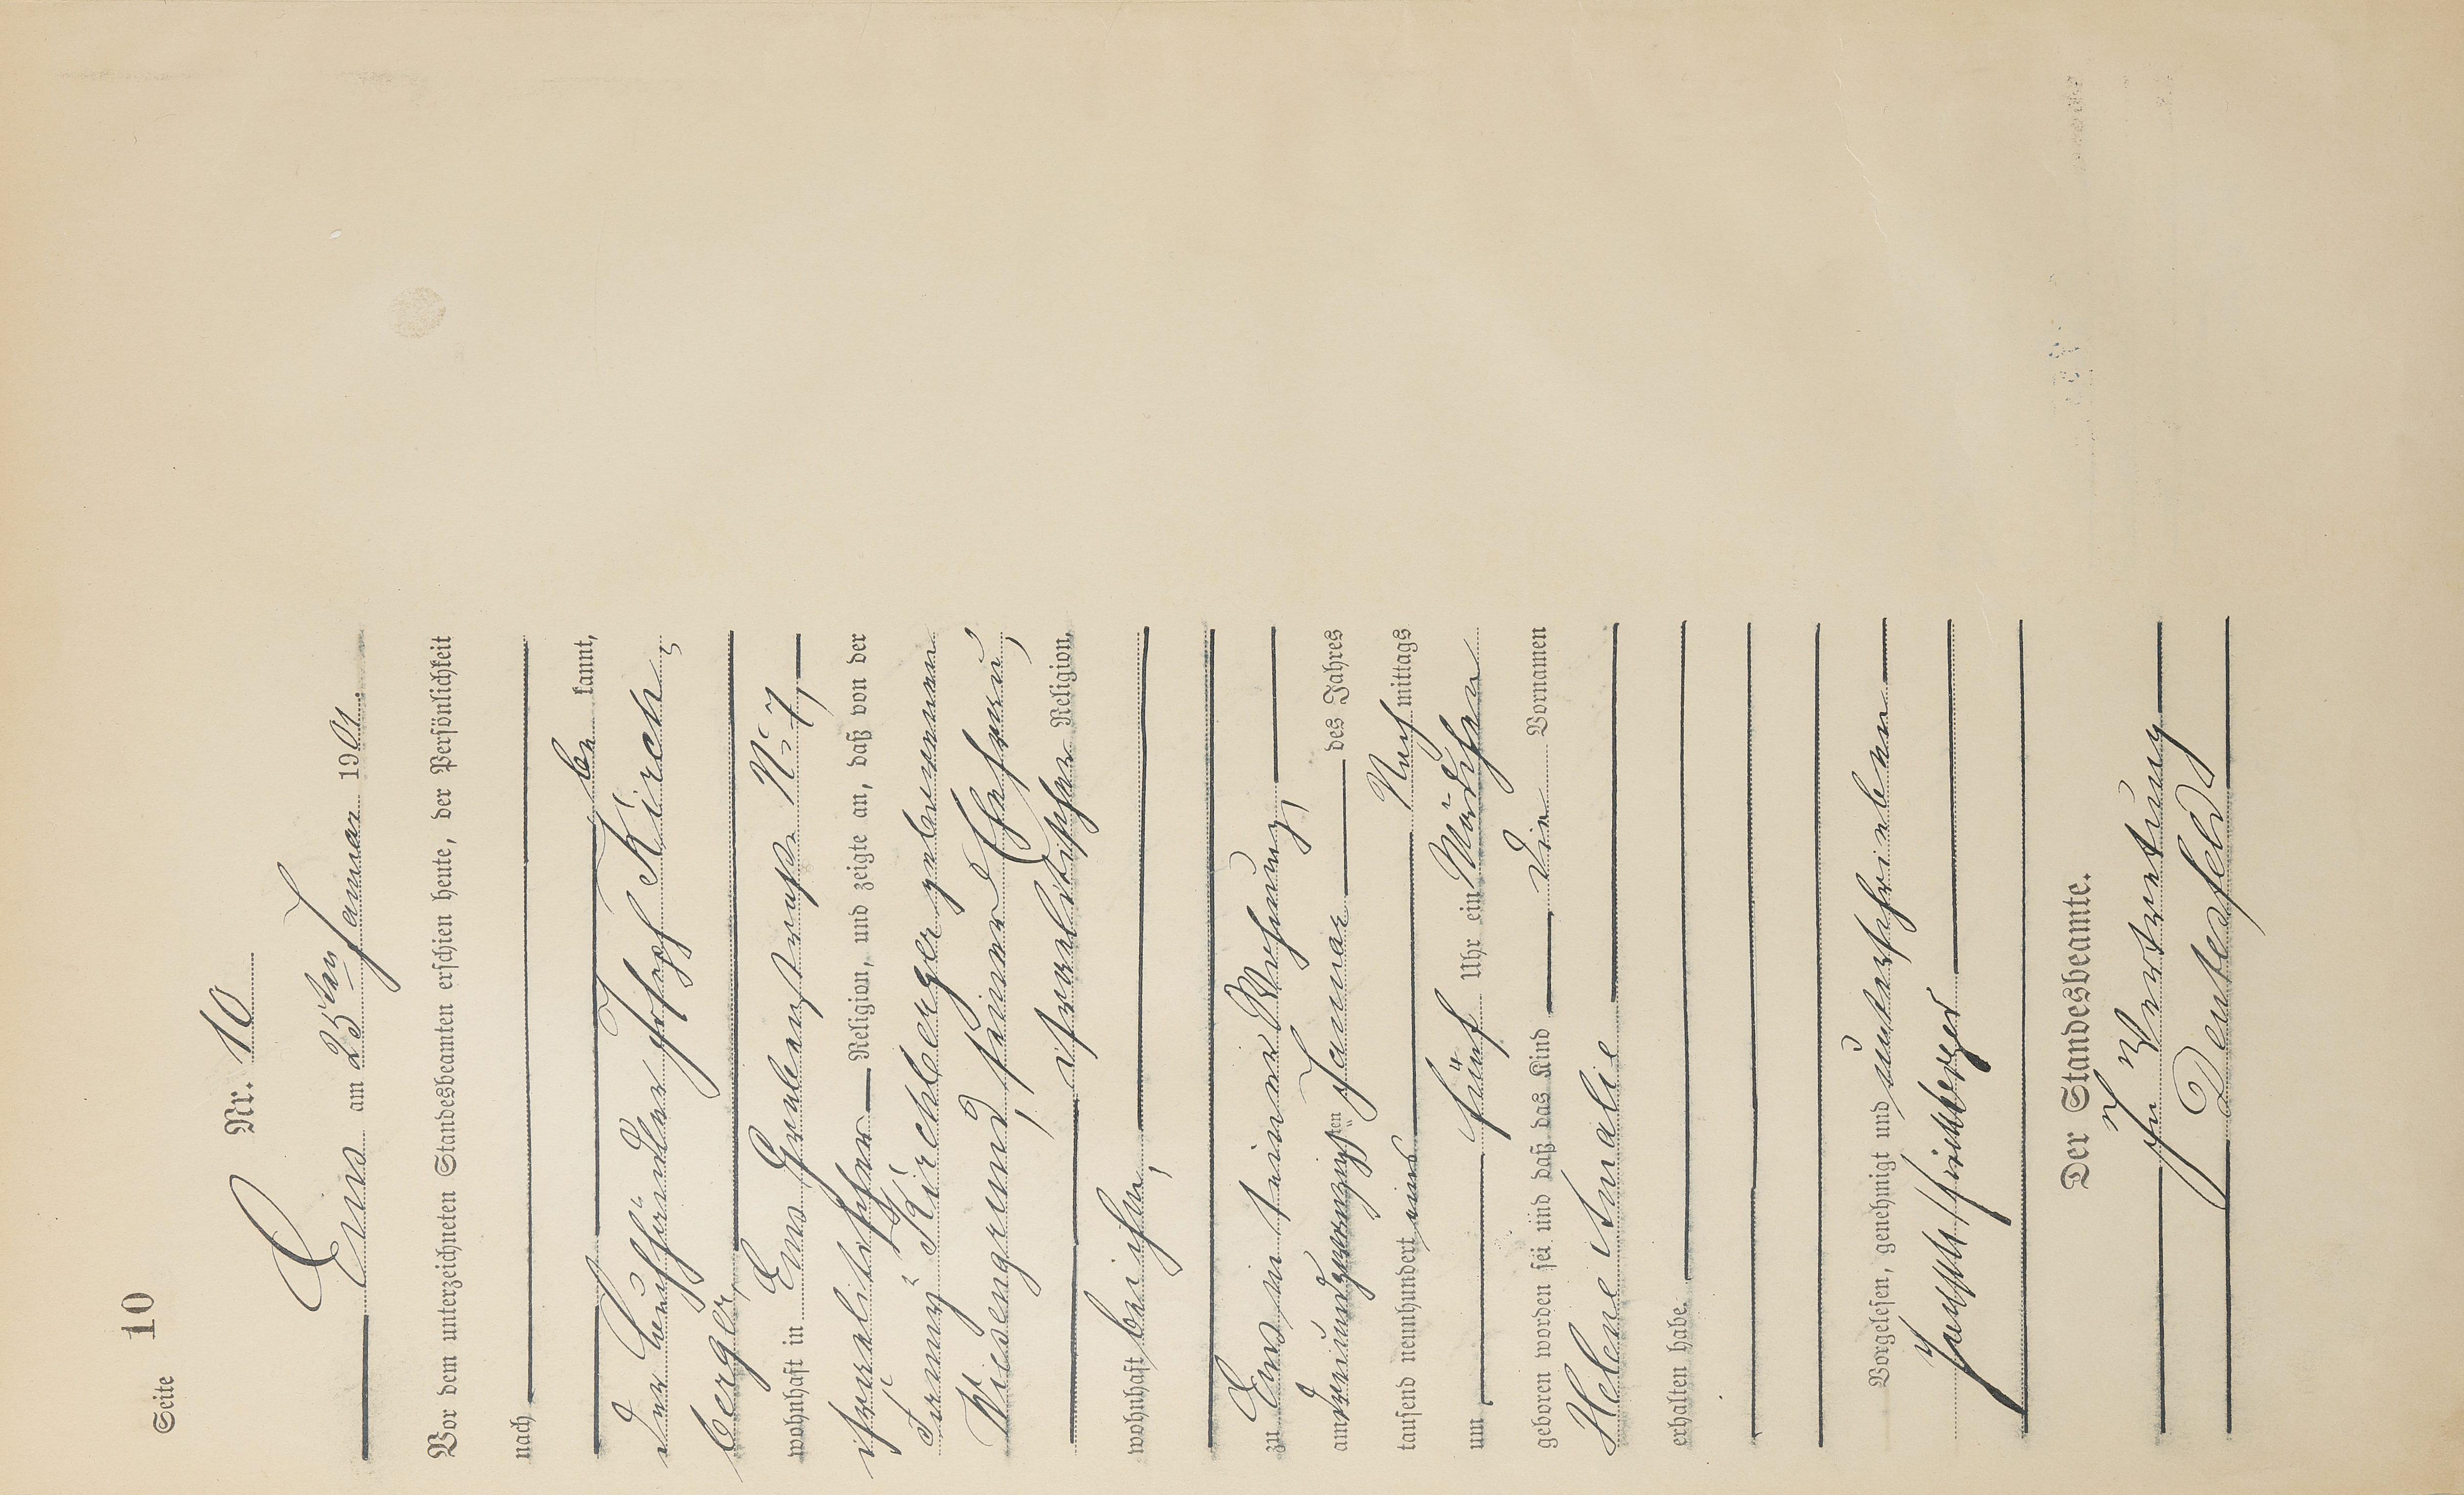 Seite 10
Nr. 10
Ems am 25ten Januar 1901.
Vor dem unterzeichneten Standesbeamten erschien heute, der Persönlichkeit
nach
be kannt,
der Kaufhändler Joseph Kirch-
berger,
wohnhaft in Ems Grabenstraße No 7,
israelitischer Religion, und zeigte an, daß von der
Fanny Kirchberger geborenen
Wiesengrund, seiner Ehefrau,
israelitischer Religion,
wohnhaft bei ihm,
zu Ems in seiner Wohnung,
am dreiundzwanzigsten Januar des Jahres
tausend neunhundert eins Nachmittags
um fünf Uhr ein Mädchen
geboren worden sei und daß das Kind die Vornamen
Helene Amalie
erhalten habe.
Vorgelesen, genehmigt und unterschrieben
Joseph Kirchberger
Der Standesbeamte.
In Vertretung